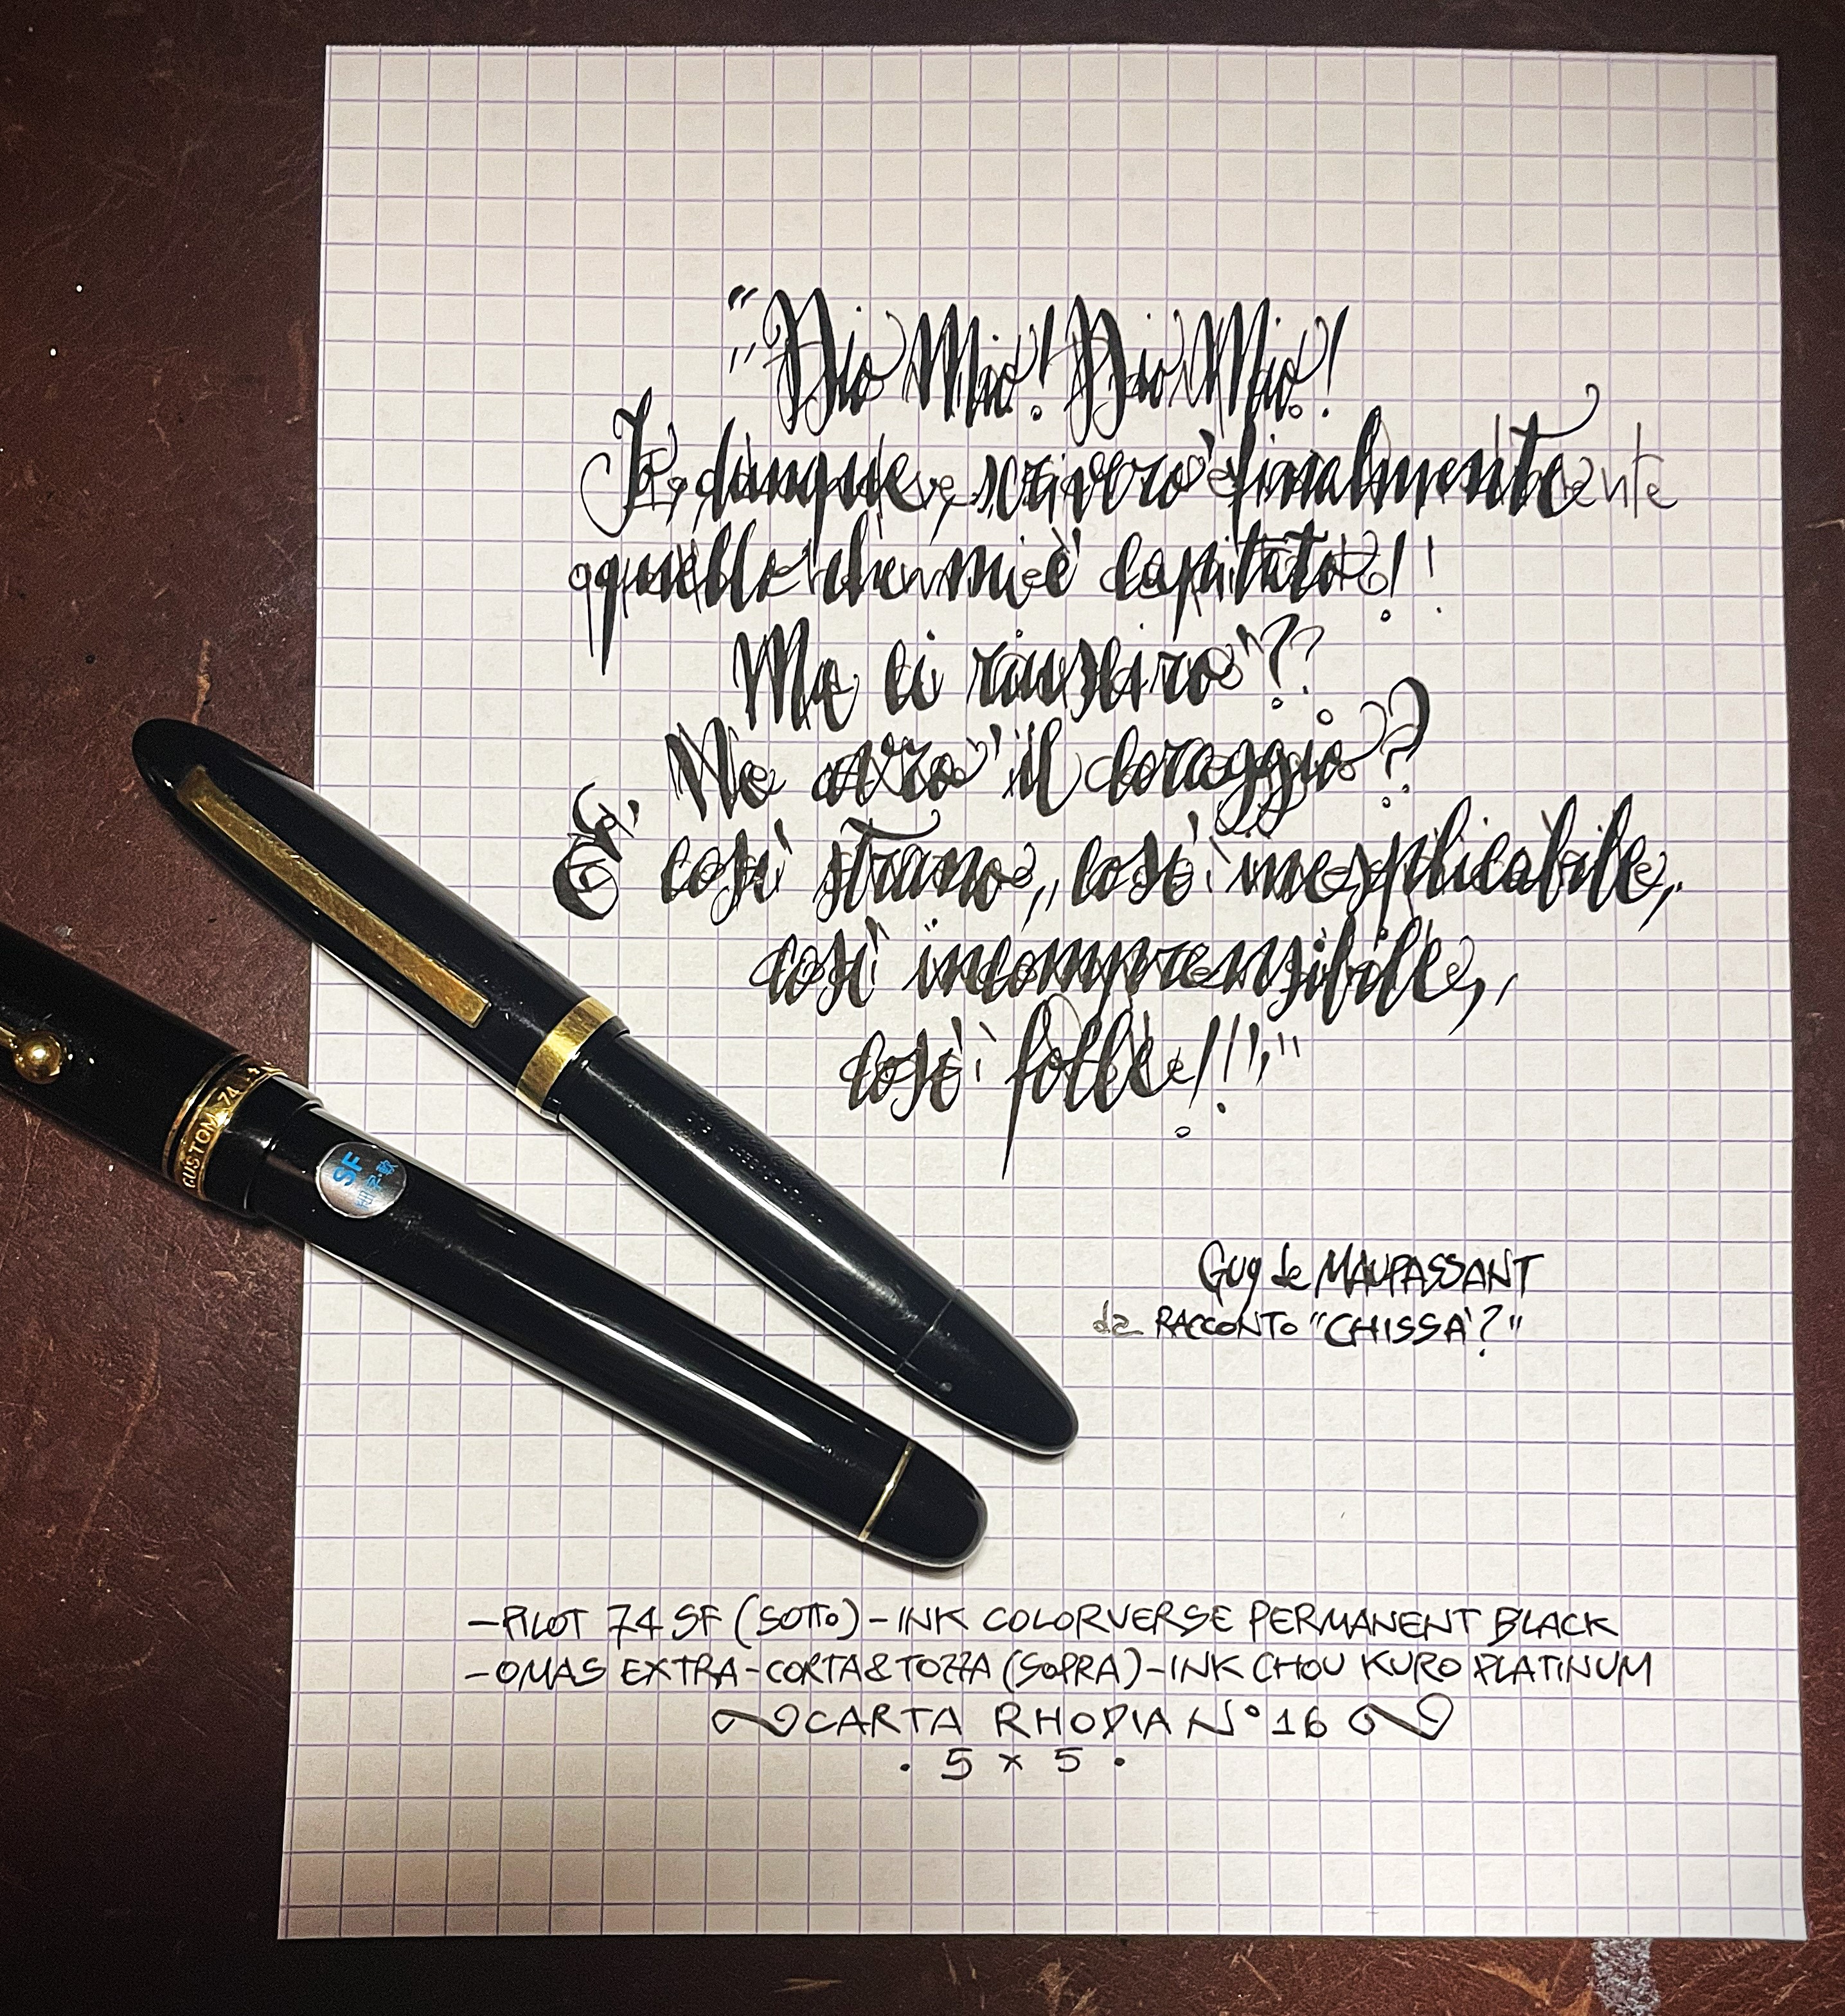 "Dio Mio! Dio Mio!
Io, dunque, scriverò finalmente
quello che mi è capitato!
Ma ci riuscirò?
Ne avrò il coraggio?
È così strano, così inesplicabile,
così incomprensibile,
così folle!"
Guy de MAUPASSANT
da RACCONTO "CHISSÀ?"
CUSTOM 74
SF
-PILOT 74 SF (SOTTO)-INK COLORVERSE PERMANENT BLACK
-OMAS EXTRA-CORTA&TOZZA (SOPRA)-INK CHOU KURO PLATINUM
CARTA RHODIA N° 16
. 5 x 5 .